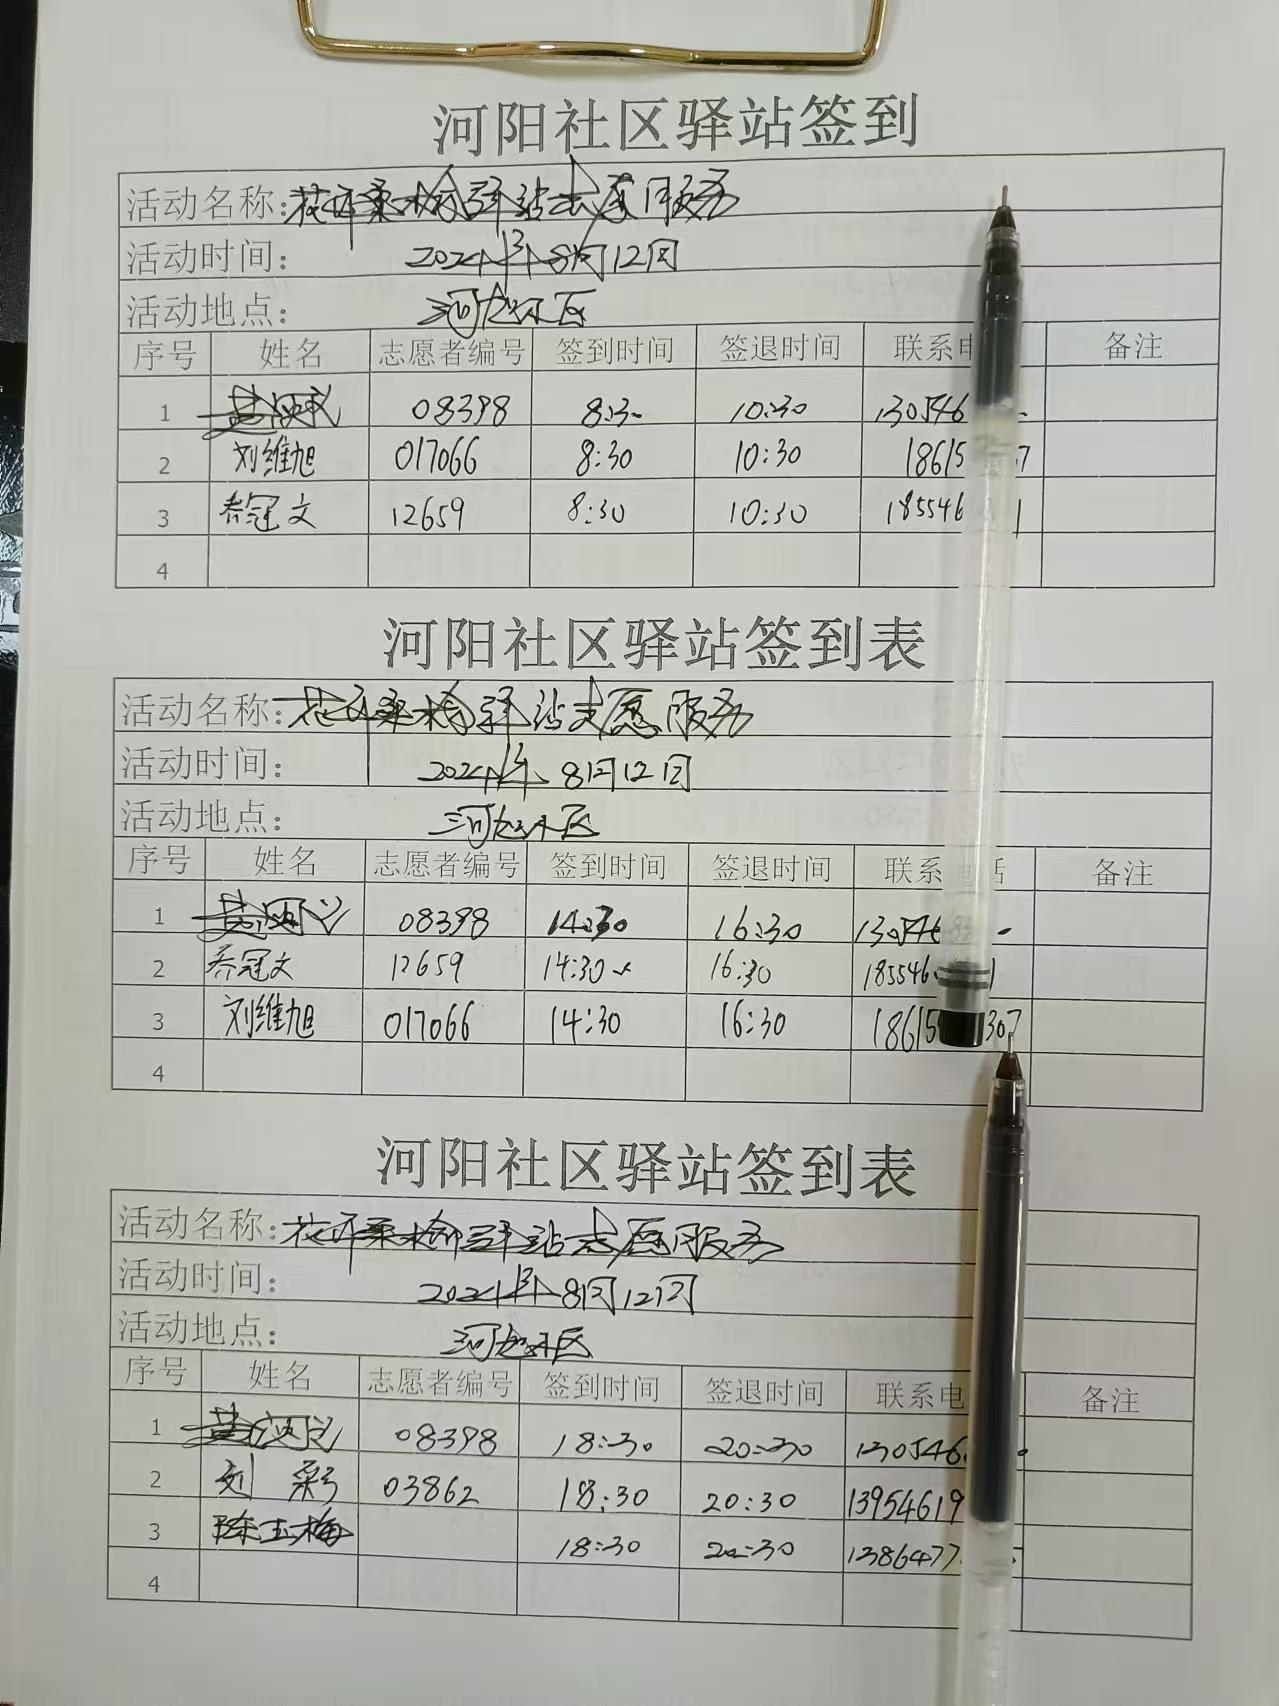 河阳社区驿站签到
活动名称:花开桑榆驿站志愿服务
活动时间: 2024年8月12日
活动地点: 河阳社区
序号 姓名 志愿者编号 签到时间 签退时间 联系电 备注
1 08398 8:30 10:30 130546
2 刘维旭 017066 8:30 10:30 18615 7
3 乔冠文 12659 8:30 10:30 185546 1
4
河阳社区驿站签到表
活动名称:花开桑榆驿站志愿服务
活动时间: 2024年8月12日
活动地点: 河阳社区
序号 姓名 志愿者编号 签到时间 签退时间 联系电话 备注
1 08398 14:30 16:30 130546
2 乔冠文 12659 14:30 16:30 185546 1
3 刘维旭 017066 14:30 16:30 18615 307
4
河阳社区驿站签到表
活动名称:花开桑榆驿站志愿服务
活动时间: 2024年8月12日
活动地点: 河阳社区
序号 姓名 志愿者编号 签到时间 签退时间 联系电 备注
1 08398 18:30 20:30 130546
2 刘彩 03862 18:30 20:30 13954619
3 陈玉梅 18:30 20:30 1386477
4